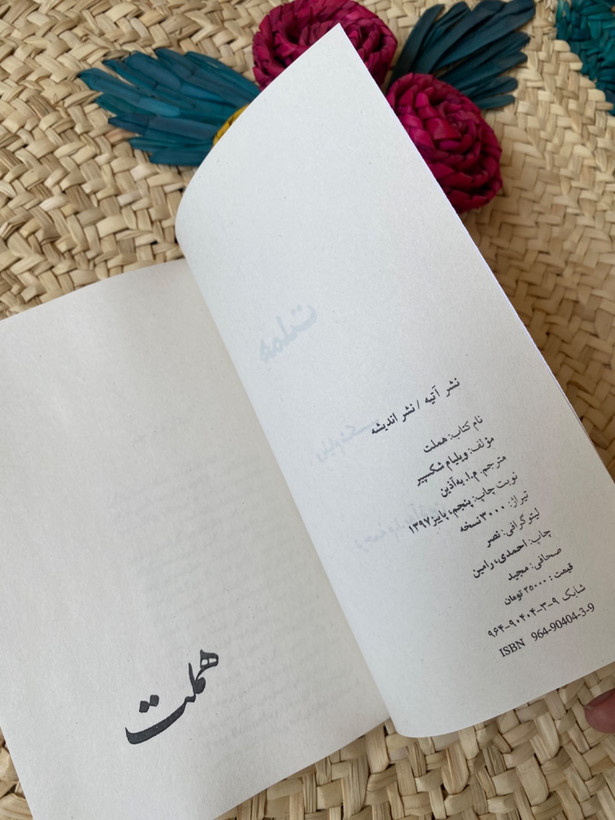 نشر آتیه / نشر اندیشه
نام کتاب: هملت
مؤلف: ویلیام شکسپیر
مترجم: م.ا. به‌آذین
نوبت چاپ: پنجم، پاییز ۱۳۹۷
تیراژ: ۳۰۰۰ نسخه
لیتوگرافی: نصر
چاپ: احمدی، رامین
صحافی: مجید
قیمت: ۲۵۰۰۰ تومان
شابک ۹-۳-۹۰۴۰۴-۹۶۴
ISBN 964-90404-3-9
هملت